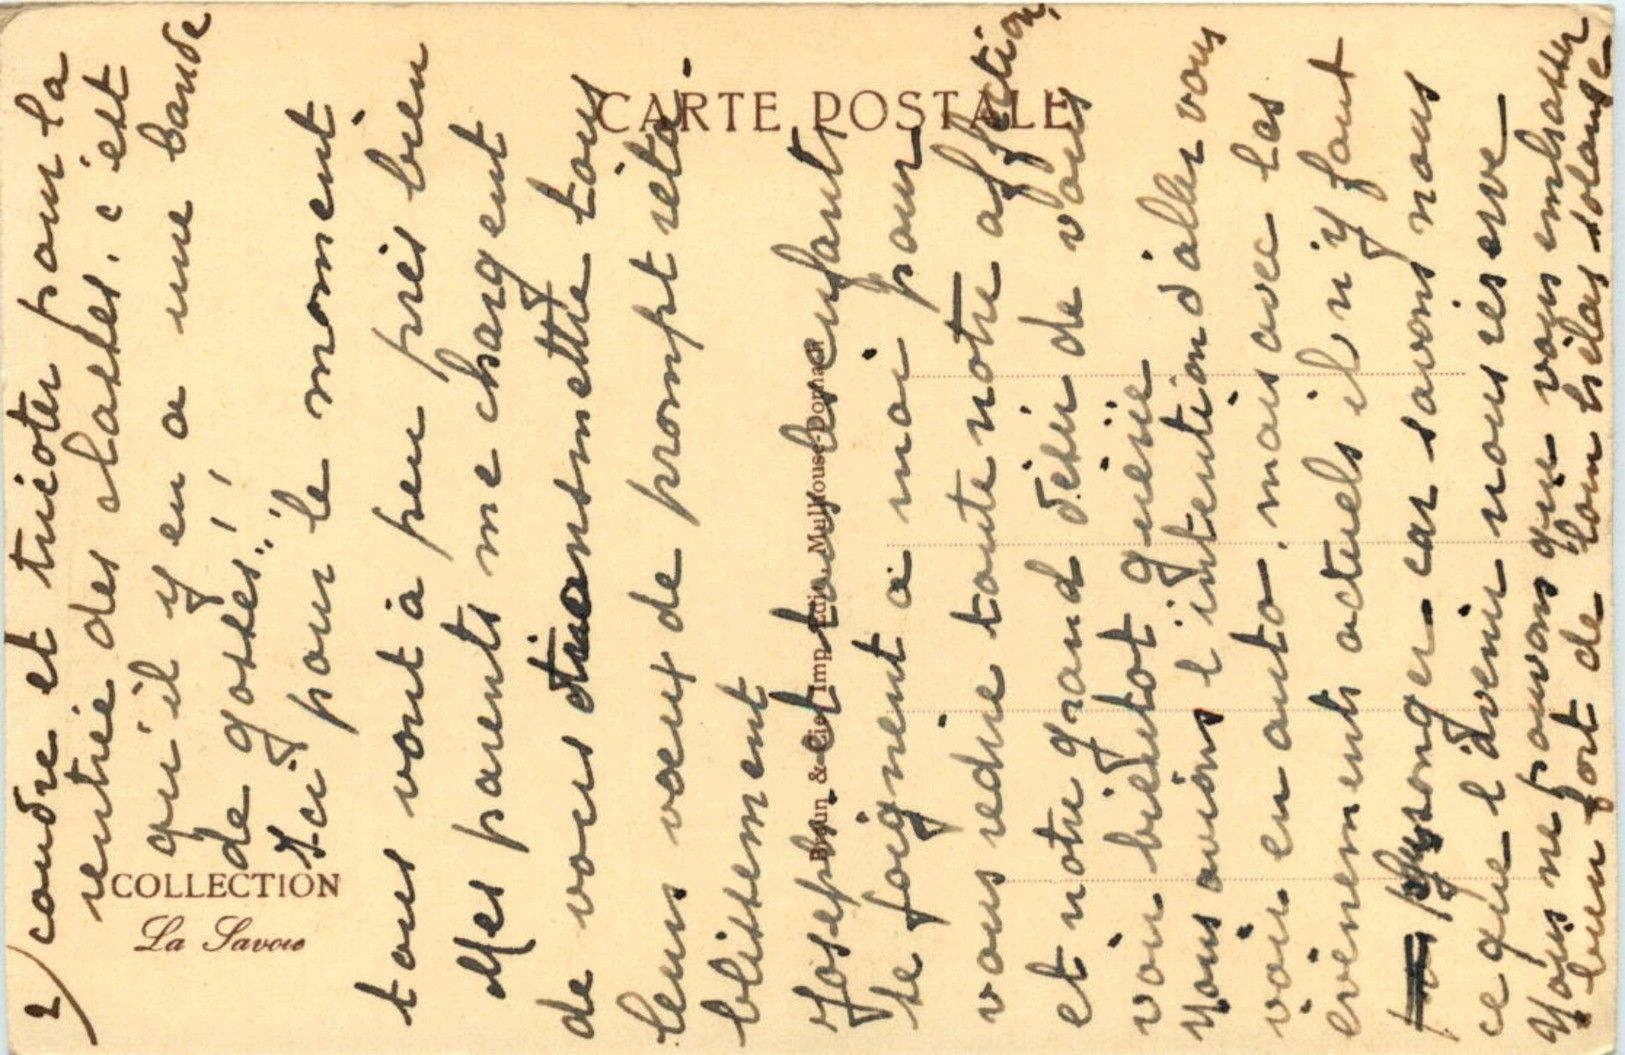 2/ coudre et tricoter pour la
rentrée des classes. c'est
qu'il y en a une bande
de gosses!!!
Ici pour le moment
tous vont à peu près bien
Mes parents me chargent
de vous transmettre tous
leurs vœux de prompt réta-
blissement
Joseph et tous les enfants
se joignent à moi pour
vous redire toute notre affection,
et notre grand désir de vous
voir bientôt guérie
Nous avions l'intention d'aller vous
voir en auto, mais avec les
événements actuels il n'y faut
plus songer car savons nous
ce que l'avenir nous réserve
Nous ne pouvons que vous embrasser
bien fort de loin hélas
CARTE POSTALE
COLLECTION
La Savoie
Braun & Cie Imp. Edit. Mulhouse-Dornach